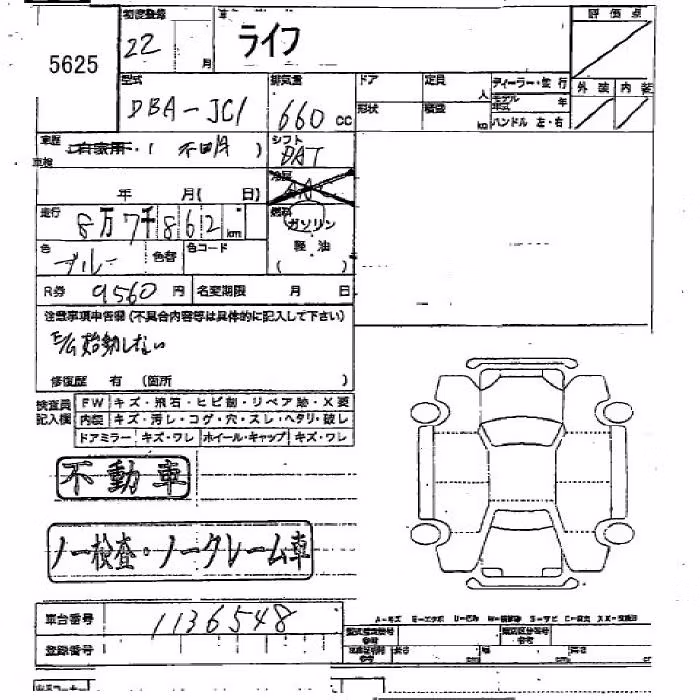 5625 初度登録 22 月 車 ライフ 評価点
型式 DBA-JC1 排気量 660 cc ドア 定員 人 ディーラー・並行 外装 内装
形状 積載 kg モデル年式 年
ハンドル 左・右
車歴 自家用・( 不明 ) シフト DAT
車検 年 月( 日) 冷房 AAC
走行 8万7千862 km 燃料 ガソリン
色 ブルー 色替 色コード 軽油
( )
R券 9560 円 名変期限 月 日
注意事項申告欄(不具合内容等は具体的に記入して下さい)
E/G始動しない
修復歴 有 (箇所 )
検査員記入欄 FW キズ・飛石・ヒビ割・リペア跡・X要
内装 キズ・汚し・コゲ・穴・スレ・ヘタリ・破レ
ドアミラー キズ・ワレ ホイール・キャップ キズ・ワレ
不動車
ノー検査・ノークレーム車
車台番号 1136548
登録番号